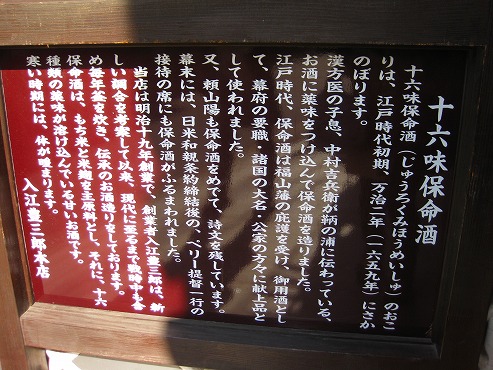 十六味保命酒
十六味保命酒（じゅうろくみほうめいしゅ）のおこ
りは、江戸時代初期、万治二年（一六五九年）にさか
のぼります。
漢方医の子息、中村吉兵衛が鞆の浦に伝わっている、
お酒に薬味をつけ込んで保命酒を造りました。
江戸時代、保命酒は福山藩の庇護を受け、御用酒とし
て、幕府の要職・諸国の大名・公家の方々に献上品と
して使われました。
又、頼山陽も保命酒をめでて、詩文を残しています。
幕末には、日米和親条約締結後の、ペリー提督一行の
接待の席にも保命酒がふるまわれました。
当店は明治十九年創業で、創業者入江豊三郎は、新
しい調合を考案して以来、現代に至るまで戦時中も含
め毎年釜を炊き、伝承のお酒造りをしております。
保命酒は、もち米と米麹を主原料とし、それに、十六
種類の薬味が溶け込んでいる甘いお酒です。
寒い時期には、体が暖まります。
入江豊三郎本店